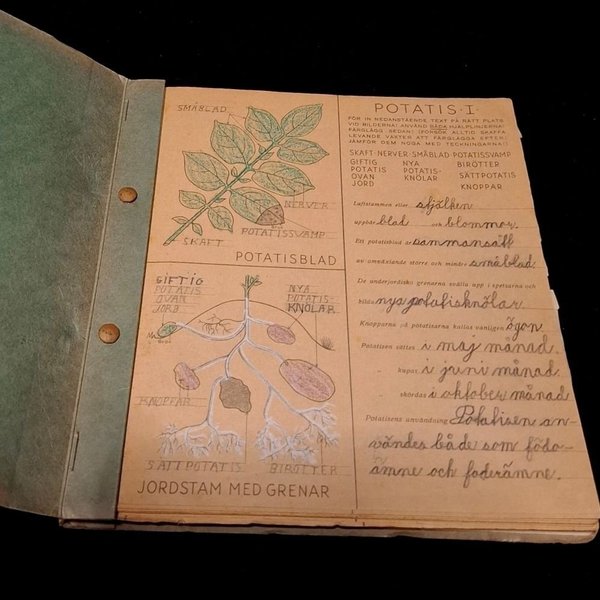 SMÅBLAD
NERVER
POTATISSVAMP
SKAFT
POTATISBLAD
GIFTIG
POTATIS
OVAN
JORD
NYA
POTATIS-
KNÖLAR
KNOPPAR
SÄTTPOTATIS
BIRÖTTER
JORDSTAM MED GRENAR
POTATIS·I
FÖR IN NEDANSTÅENDE TEXT PÅ RÄTT PLATS
VID BILDERNA! ANVÄND BÅDA HJÄLPLINJERNA!
FÄRGLÄGG SEDAN! (FÖRSÖK ALLTID SKAFFA
LEVANDE VÄXTER ATT FÄRGLÄGGA EFTER!
JÄMFÖR DEM NOGA MED TECKNINGARNA!)
SKAFT·NERVER·SMÅBLAD·POTATISSVAMP
GIFTIG NYA BIRÖTTER
POTATIS POTATIS-
OVAN KNÖLAR SÄTTPOTATIS
JORD KNOPPAR
Luftstammen eller stjälken
uppbär blad och blommor.
Ett potatisblad är sammansatt
av omväxlande större och mindre småblad.
De underjordiska grenarna svälla upp i spetsarna och
bilda nya potatisknölar
Knopparna på potatisarna kallas vanligen ögon.
Potatisen sättes i maj månad.
„ kupas i juni månad.
„ skördas i oktober månad
Potatisens användning Potatisen an-
vändes både som födo-
ämne och foderämne.